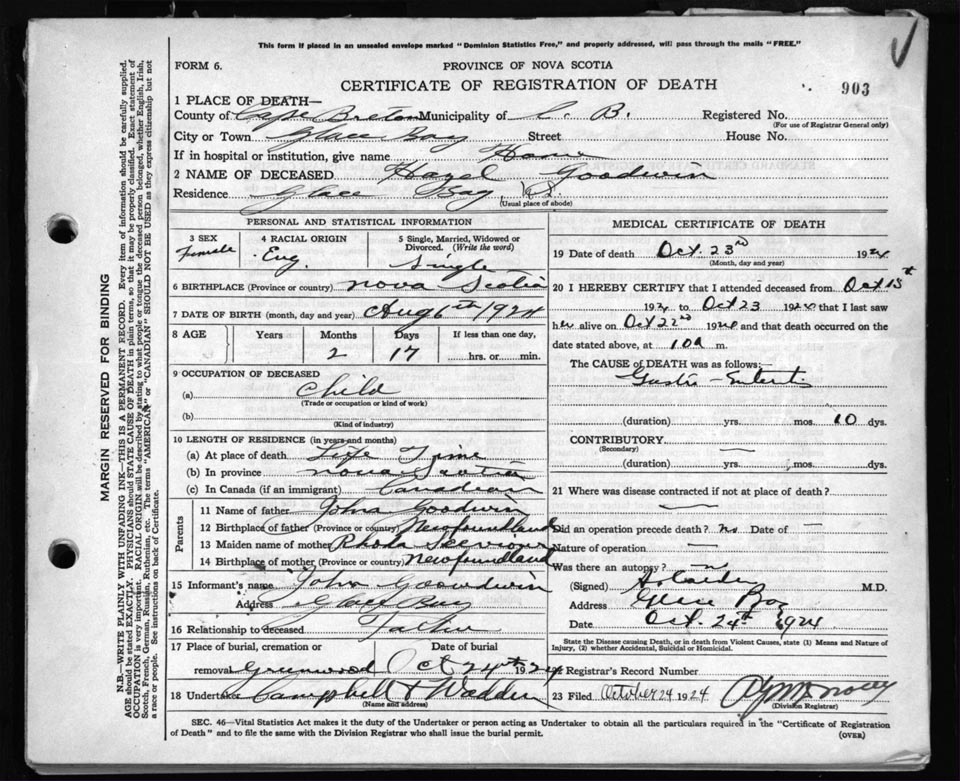 This form if placed in an unsealed envelope marked "Dominion Statistics Free," and properly addressed, will pass through the mails "FREE."
FORM 6.
PROVINCE OF NOVA SCOTIA
CERTIFICATE OF REGISTRATION OF DEATH
903
1 PLACE OF DEATH—
County of Cape Breton Municipality of C. B. Registered No.
(For use of Registrar General only)
City or Town Glace Bay Street House No.
If in hospital or institution, give name Home
2 NAME OF DECEASED Hazel Goodwin
Residence Glace Bay
(Usual place of abode)
PERSONAL AND STATISTICAL INFORMATION
3 SEX Female
4 RACIAL ORIGIN Eng.
5 Single, Married, Widowed or Divorced. (Write the word) Single
6 BIRTHPLACE (Province or country) Nova Scotia
7 DATE OF BIRTH (month, day and year) Aug 6th 1924
8 AGE Years Months Days If less than one day,
2 17 hrs. or min.
9 OCCUPATION OF DECEASED
(a) Child
(Trade or occupation or kind of work)
(b)
(Kind of industry)
10 LENGTH OF RESIDENCE (in years and months)
(a) At place of death Life Time
(b) In province Nova Scotia
(c) In Canada (if an immigrant) Canadian
Parents
11 Name of father John Goodwin
12 Birthplace of father (Province or country) Newfoundland
13 Maiden name of mother Rhoda
14 Birthplace of mother (Province or country) Newfoundland
15 Informant's name John Goodwin
Address Glace Bay
16 Relationship to deceased Father
17 Place of burial, cremation or Date of burial
removal Greenwood Oct 24th 1924
18 Undertaker Campbell & Wadden
(Name and address)
MEDICAL CERTIFICATE OF DEATH
19 Date of death Oct. 23rd 1924
(Month, day and year)
20 I HEREBY CERTIFY that I attended deceased from Oct 13th
1924 to Oct 23 1924 that I last saw
her alive on Oct 22nd 1924 and that death occurred on
date stated above, at 10a m.
The CAUSE OF DEATH was as follows:—
Gastro-Enteritis
(duration) yrs. mos. 10 dys.
CONTRIBUTORY —
(Secondary)
(duration) yrs. mos. dys.
21 Where was disease contracted if not at place of death?
Did an operation precede death? no Date of —
Nature of operation —
Was there an autopsy?
(Signed) M.D.
Address Glace Bay
Date Oct. 24th 1924
State the Disease causing Death, or in death from Violent Causes, state (1) Means and Nature of
Injury, (2) whether Accidental, Suicidal or Homicidal.
Registrar's Record Number
23 Filed October 24 1924
(Division Registrar)
SEC. 46—Vital Statistics Act makes it the duty of the Undertaker or person acting as Undertaker to obtain all the particulars required in the "Certificate of Registration
of Death" and to file the same with the Division Registrar who shall issue the burial permit.
(OVER)
MARGIN RESERVED FOR BINDING
N.B.—WRITE PLAINLY WITH UNFADING INK—THIS IS A PERMANENT RECORD. Every item of information should be carefully supplied.
AGE should be stated EXACTLY. PHYSICIANS should STATE CAUSE OF DEATH in plain terms, so that it may be properly classified. Exact statement of
OCCUPATION is very important. RACIAL ORIGIN will be described by stating to what people or tongue the deceased person belonged, whether English, Irish,
Scotch, French, German, Russian, Ruthenian, etc. The terms "AMERICAN" or "CANADIAN" SHOULD NOT BE USED as they express citizenship but not
a race or people. See instructions on back of Certificate.